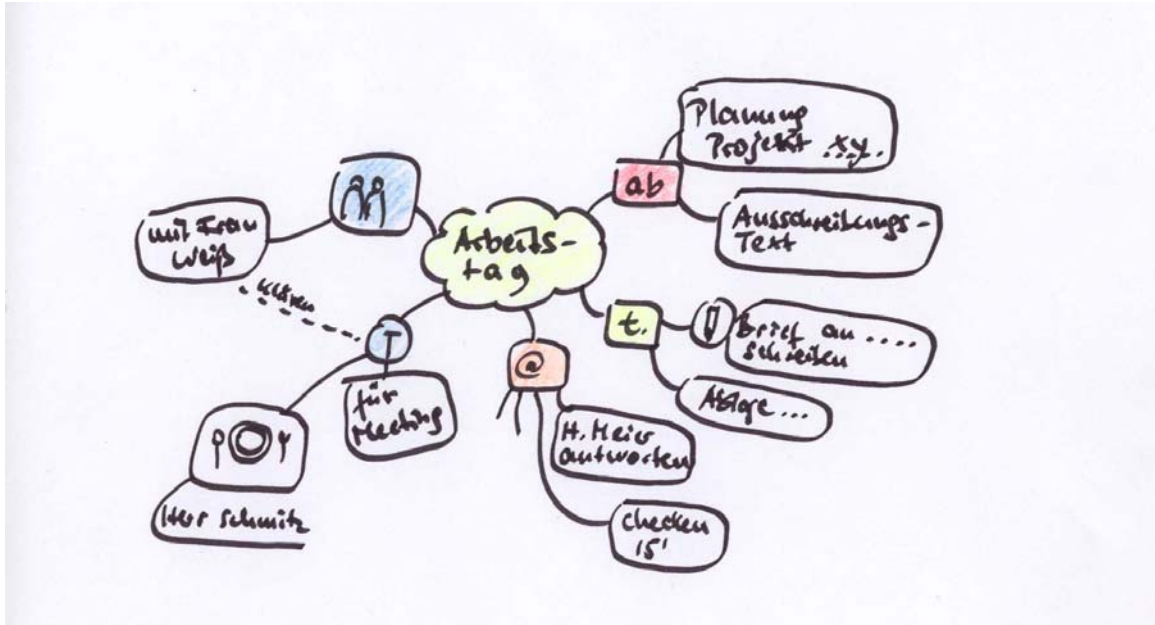 Arbeits-
tag
ab
Planung
Projekt xy.
Ausschreibungs-
Text
t.
Brief an ....
schreiben
Ablage ...
@
H. Meier
antworten
checken
15'
T
für
Meeting
Herr Schmitz
klären
mit Frau
Weiß